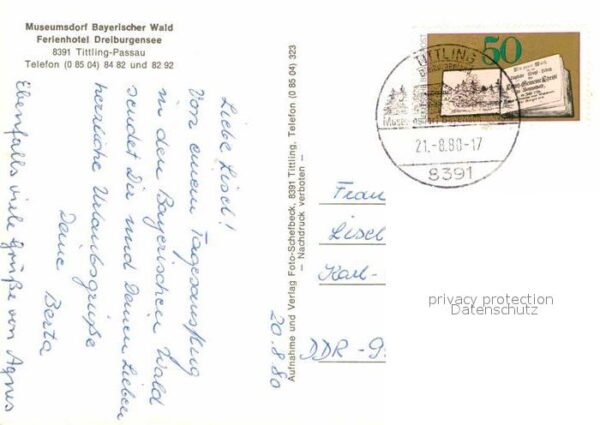 Museumsdorf Bayerischer Wald
Ferienhotel Dreiburgensee
8391 Tittling-Passau
Telefon (0 85 04) 84 82 und 82 92
Liebe Lisel!
Von einem Tagesausflug
in den Bayerischen Wald
sendet Dir und Deinen Lieben
herzliche Urlaubsgrüße
Deine Berta
Ebenfalls viele Grüße von Agnes
20.8.80
Aufnahme und Verlag Foto-Schefbeck, 8391 Tittling, Telefon (0 85 04) 323
– Nachdruck verboten –
50
TITTLING
Museumsdorf Bayerischer
21.-8.80-17
8391
Frau
Lisel
Karl-
DDR-9
privacy protection
Datenschutz